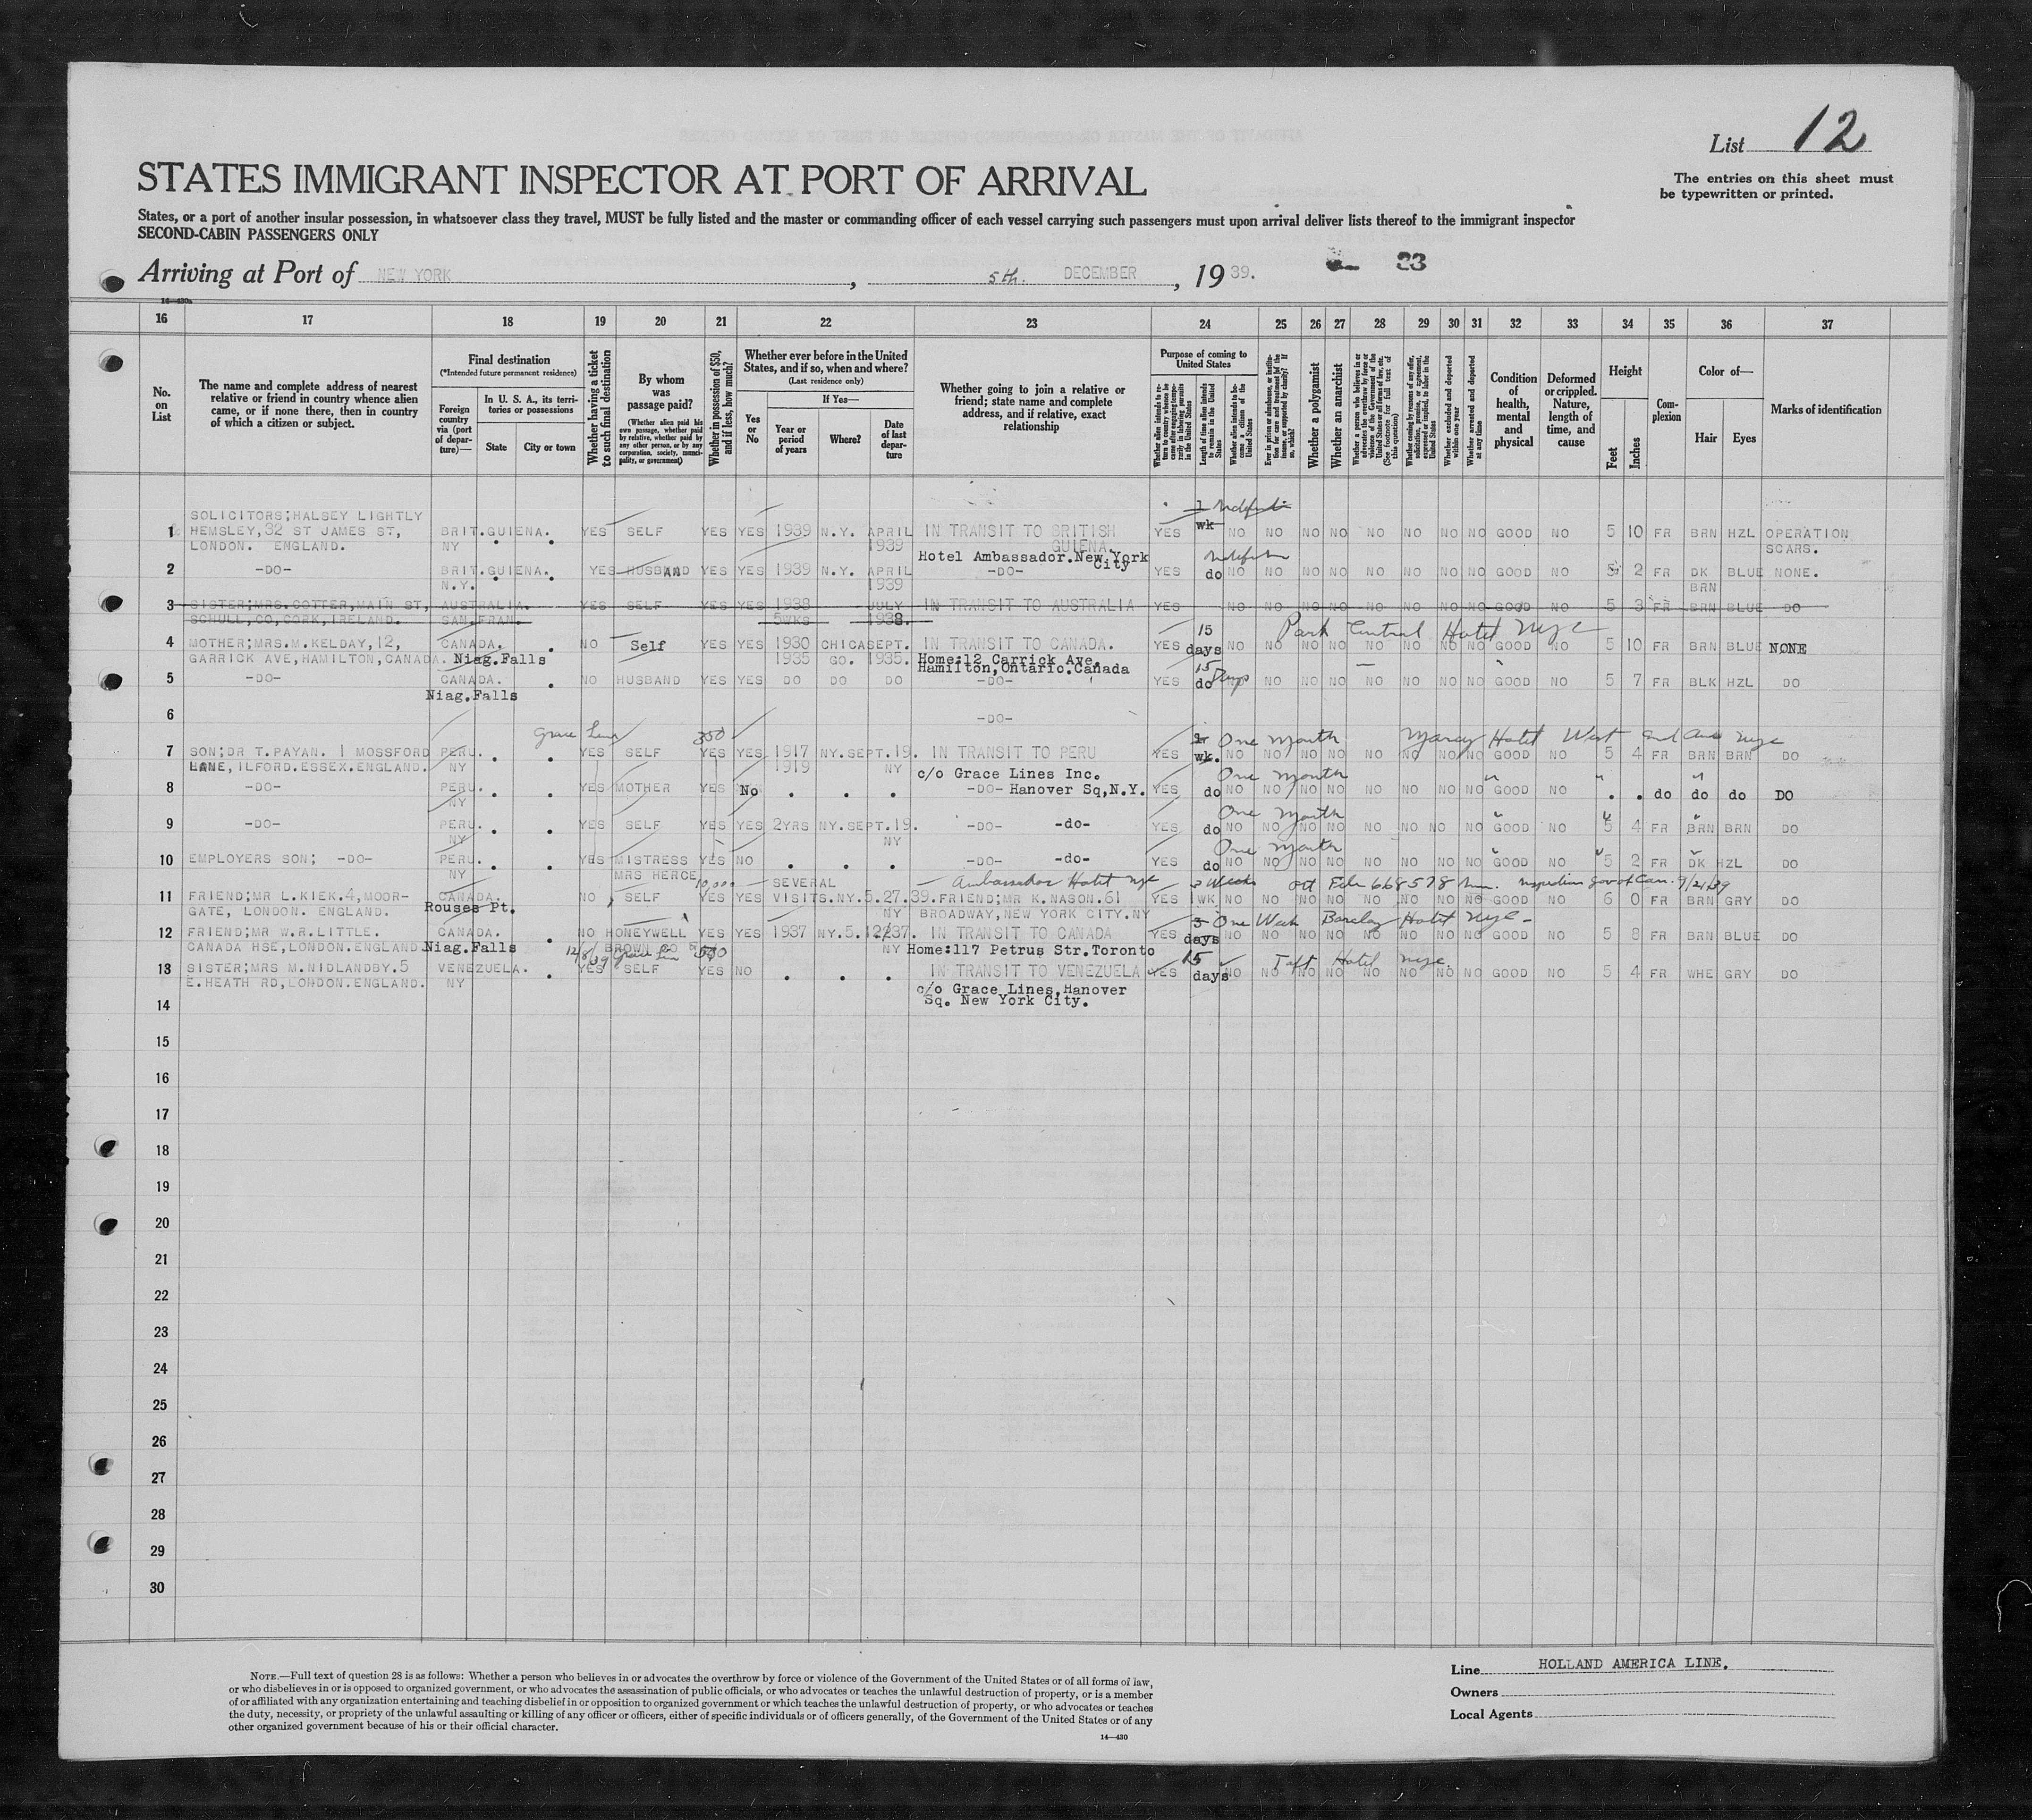 List 12
The entries on this sheet must
be typewritten or printed.
STATES IMMIGRANT INSPECTOR AT PORT OF ARRIVAL
States, or a port of another insular possession, in whatsoever class they travel, MUST be fully listed and the master or commanding officer of each vessel carrying such passengers must upon arrival deliver lists thereof to the immigrant inspector
SECOND-CABIN PASSENGERS ONLY
Arriving at Port of NEW YORK, 5th. DECEMBER, 1939. 23
16 17 18 19 20 21 22 23 24 25 26 27 28 29 30 31 32 33 34 35 36 37
No. on List
The name and complete address of nearest relative or friend in country whence alien came, or if none there, then in country of which a citizen or subject.
Final destination
(*Intended future permanent residence)
Foreign country via (port of departure)—
In U. S. A., its territories or possessions
State City or town
Whether having a ticket to such final destination
By whom was passage paid?
(Whether alien paid his own passage, whether paid by relative, whether paid by any other person, or by any corporation, society, municipality, or government)
Whether in possession of $50, and if less, how much?
Whether ever before in the United States, and if so, when and where?
(Last residence only)
Yes or No
If Yes—
Year or period of years Where? Date of last departure
Whether going to join a relative or friend; state name and complete address, and if relative, exact relationship
Purpose of coming to United States
Length of time alien intends to remain in the United States
Whether alien intends to become a citizen of the United States
Whether a polygamist
Whether an anarchist
Whether excluded and deported within one year
Whether arrested and deported at any time
Condition of health, mental and physical
Deformed or crippled. Nature, length of time, and cause
Height
Feet Inches
Complexion
Color of—
Hair Eyes
Marks of identification
SOLICITORS;HALSEY LIGHTLY 1 Indefinite
1 HEMSLEY,32 ST JAMES ST, BRIT.GUIENA. YES SELF YES YES 1939 N.Y. APRIL IN TRANSIT TO BRITISH YES wk NO NO NO NO NO NO NO NO GOOD NO 5 10 FR BRN HZL OPERATION
LONDON. ENGLAND. NY 1939 GUIENA. SCARS.
Hotel Ambassador.New York City Indefinite
2 -DO- BRIT.GUIENA. YES HUSBAND YES YES 1939 N.Y. APRIL -DO- YES do NO NO NO NO NO NO NO NO GOOD NO 5 2 FR DK BLUE NONE.
N.Y. 1939 BRN
3 SISTER;MRS.COTTER,MAIN ST, AUSTRALIA. YES SELF YES YES 1938 JULY IN TRANSIT TO AUSTRALIA YES NO NO NO NO NO NO NO NO GOOD NO 5 3 FR BRN BLUE DO
SCHULL,CO,CORK,IRELAND. SAN.FRAN. 5WKS 1938.
15 Park Central Hotel Nyc
4 MOTHER;MRS.M.KELDAY,12, CANADA. NO Self YES YES 1930 CHICA SEPT. IN TRANSIT TO CANADA. YES days NO NO NO NO NO NO NO NO GOOD NO 5 10 FR BRN BLUE NONE
GARRICK AVE,HAMILTON,CANADA. Niag.Falls 1935 GO. 1935. Home:12 Carrick Ave,
Hamilton,Ontario.Canada 15 Days
5 -DO- CANADA. NO HUSBAND YES YES DO DO DO -DO- YES do NO NO NO NO NO NO NO GOOD NO 5 7 FR BLK HZL DO
Niag.Falls
6 -DO-
Grace Line 350 One Month Marcy Hotel West End Ave Nyc
7 SON;DR T.PAYAN. 1 MOSSFORD PERU. YES SELF YES YES 1917 NY. SEPT.19. IN TRANSIT TO PERU YES wk. NO NO NO NO NO NO NO NO GOOD NO 5 4 FR BRN BRN DO
LANE,ILFORD.ESSEX.ENGLAND. NY 1919 NY c/o Grace Lines Inc.
One Month
8 -DO- PERU. YES MOTHER YES No -DO- Hanover Sq,N.Y. YES do NO NO NO NO NO NO NO NO GOOD NO do do do DO
NY One Month
9 -DO- PERU. YES SELF YES YES 2YRS NY. SEPT.19. -DO- -do- YES do NO NO NO NO NO NO NO NO GOOD NO 5 4 FR BRN BRN DO
NY NY One Month
10 EMPLOYERS SON; -DO- PERU. YES MISTRESS YES NO -DO- -do- YES do NO NO NO NO NO NO NO NO GOOD NO 5 2 FR DK HZL DO
NY MRS HERCE 10,000 SEVERAL Ambassador Hotel Nyc 3 Weeks
11 FRIEND;MR L.KIEK.4,MOOR- CANADA. NO SELF YES YES VISITS.NY.5.27.39. FRIEND;MR K.NASON.61 YES 1WK NO NO NO NO NO NO NO NO GOOD NO 6 0 FR BRN GRY DO
GATE, LONDON. ENGLAND. Rouses Pt. NY BROADWAY,NEW YORK CITY.NY
3 One Week Barclay Hotel Nyc
12 FRIEND;MR W.R.LITTLE. CANADA. NO HONEYWELL YES YES 1937 NY.5.12/37. IN TRANSIT TO CANADA YES days NO NO NO NO NO NO NO NO GOOD NO 5 8 FR BRN BLUE DO
CANADA HSE,LONDON.ENGLAND. Niag.Falls BROWN CO NY Home:117 Petrus Str.Toronto
12/8/39 Grace Line 500 15 Taft Hotel Nyc.
13 SISTER;MRS M.NIDLANDBY.5 VENEZUELA. YES SELF YES NO IN TRANSIT TO VENEZUELA YES days NO NO NO NO NO NO NO NO GOOD NO 5 4 FR WHE GRY DO
E.HEATH RD,LONDON.ENGLAND. NY c/o Grace Lines,Hanover
Sq. New York City.
14
15
16
17
18
19
20
21
22
23
24
25
26
27
28
29
30
NOTE.—Full text of question 28 is as follows: Whether a person who believes in or advocates the overthrow by force or violence of the Government of the United States or of all forms of law,
or who disbelieves in or is opposed to organized government, or who advocates the assassination of public officials, or who advocates or teaches the unlawful destruction of property, or is a member
of or affiliated with any organization entertaining and teaching disbelief in or opposition to organized government or which teaches the unlawful destruction of property, or who advocates or teaches
the duty, necessity, or propriety of the unlawful assaulting or killing of any officer or officers, either of specific individuals or of officers generally, of the Government of the United States or of any
other organized government because of his or their official character.
14—430
Line HOLLAND AMERICA LINE.
Owners
Local Agents